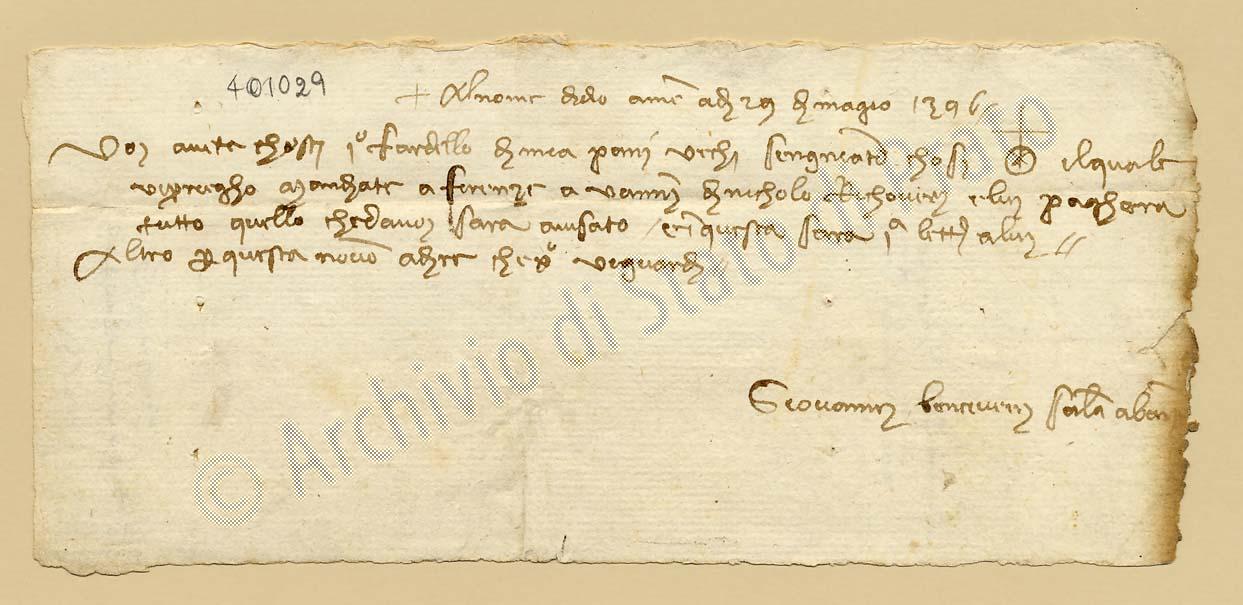 401029
+ Al nome di dio amē adi 29 di magio 1396
Voi avete chosti 1º fardello di mea panni vechi sengniato chosi il quale
vi priegho mandiate a firenze a vanni di nicholo Richoveri e lui paghera
tutto quello che da voi sara avisato e in questa sara 1ª lettª a lui //
Altro per questa non vō a dire che xpº vi guardi
Giovanni benciveni
© Archivio di Stato di Prato